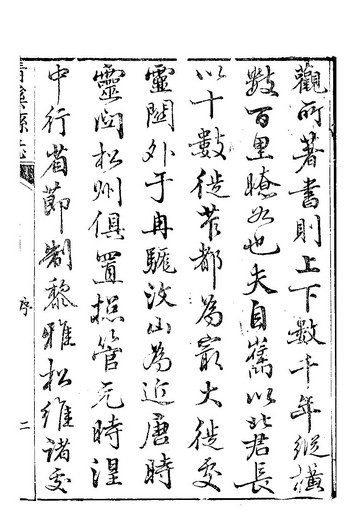 觀所著書則上下數千年縱橫
數百里瞭如也夫自嶲以北君長
以十數徙笮都為最大徙處
靈關外于冉駹汶山為近唐時
靈關松州俱置揔管元時湟
中行省節制黎雅松維諸處
清溪縣志
序
二